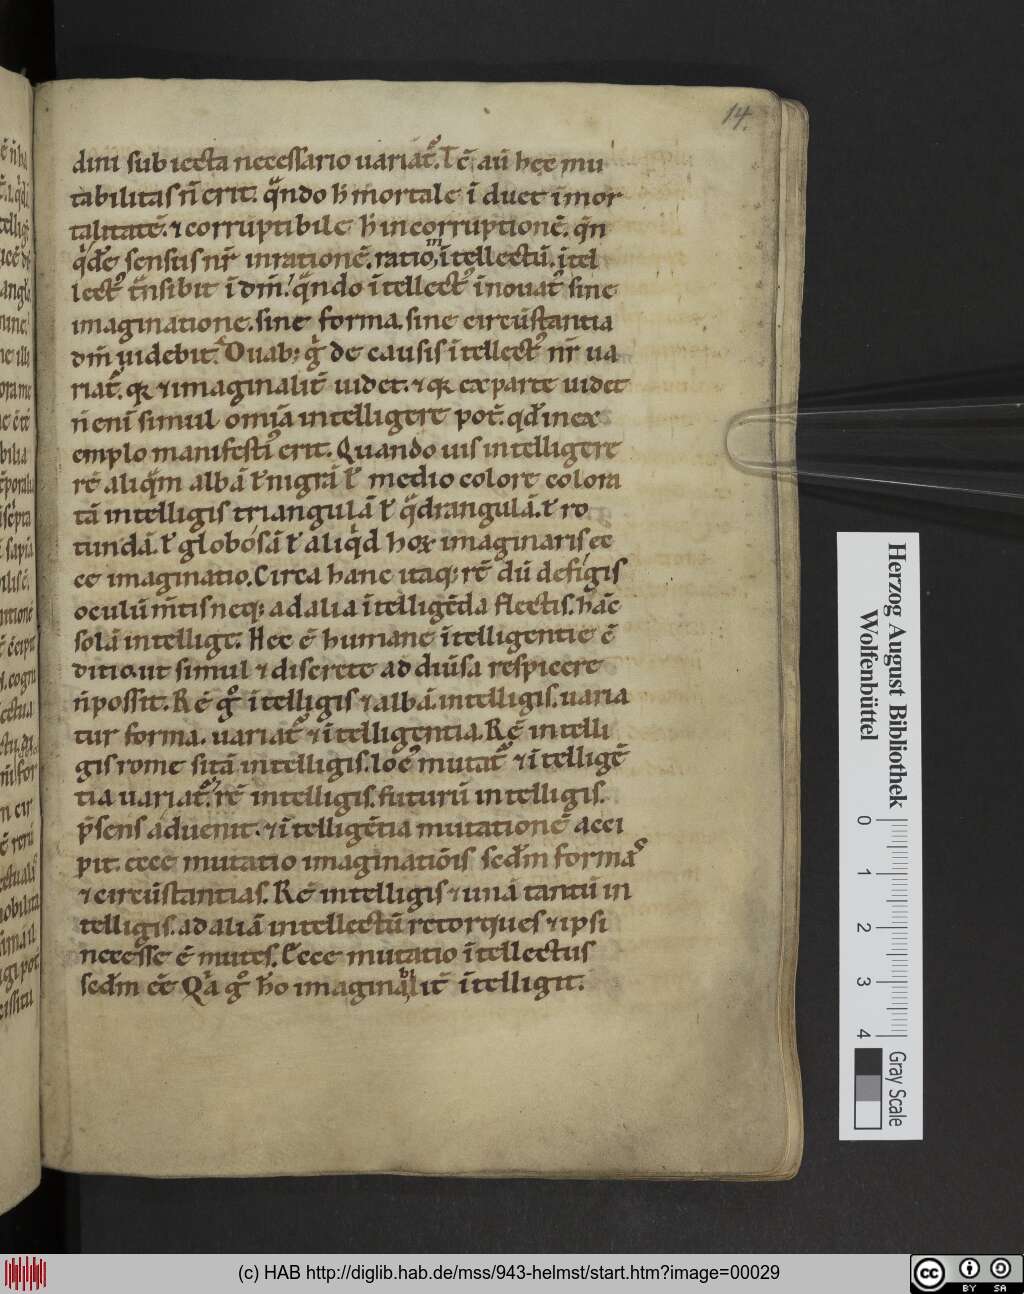 14.
dini subiecta necessario uariat᷒. Tc̄ aū hec mu
tabilitas n̄ erit. qͣndo h̄ mortale ī duet īmor
talitatē. ⁊ corruptibile h̄ incorruptionē. qͣn
qͥdē sensus nr̄ inrationē. ratio ītellectū. ītel
lect᷒ tn̄sibit ī dm̄. qͣndo ītellect᷒ īnouat᷒ sine
imaginatione. sine forma. sine circūstantia
dm̄ uidebit. Duab; gͦ de causis ītellect᷒ nr̄ ua
riat᷒. qꝛ ⁊ imaginalit̄ uidet. ⁊ qꝛ ex parte uidet
n̄ enī simul omīa intelligere pot̄. qd̄ inex
emplo manifesti᷒ erit. Quando uis intelligere
rē aliqͣm albā ł nigrā ł medio colore colora
tā intelligis triangulā ł qͣdrangulā. ł ro
tundā. ł globosā ł aliqͥd hoꝝ imaginaris ec
ce imaginatio. Circa hanc itaq; rē dū defigis
oculū m̄tis neq; ad alia ītelligēda flectis. hāc
solā intelligis. Hec ē humane ītelligentie cō
ditio. ut simul ⁊ discrete ad diuīsa respicere
n̄ possit. Rē gͦ ītelligis ⁊ albā intelligis. uaria
tur forma. uariat᷒ ⁊ ītelligentia. Rē intelli
gis rome sitā intelligis. loc᷒ mutat᷒ ⁊ ītelligē
tia uariat᷒. rē intelligis. futurū intelligis.
p̄sens aduenit. ⁊ ītelligētia mutationē acci
pit. ecce mutatio imaginatiōis scd̄m formaˢ
⁊ circūstantias. Rē intelligis ⁊ unā tantū in
telligis. ad aliā intellectū retorques ⁊ ipsī
necesse ē mutes. Ecce mutatio ītellectus
scd̄m cē Qͥa gͦ hō imaginabilit̄ ītelligit.
Herzog August Bibliothek
Wolfenbüttel
0 1 2 3 4
Gray Scale
(c) HAB http://diglib.hab.de/mss/943-helmst/start.htm?image=00029
cc BY SA